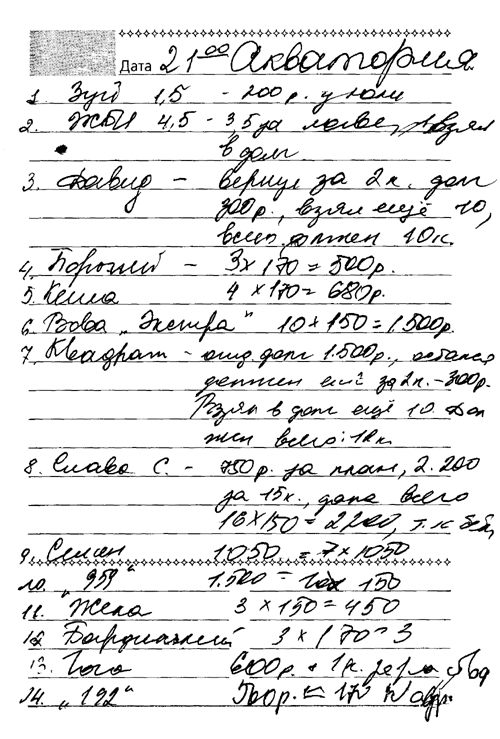 Дата 21⁰⁰ Акватория
1. Зуд 1,5 - 200 р. у Юли
2. ЖБИ 4,5 - 3,5 за взял
в долг
3. Давид - вернул за 2 к. долг
300 р., взял ещё 10,
всего должен 10 к.
4. - 3×170 = 500 р.
5. Кеша 4 × 170 = 680 р.
6. Вова "Экстра" 10×150 = 1.500 р.
7. Квадрат - долг 1.500 р., остался
должен ещё за 2 к. - 300 р.
Взял в долг ещё 10. Дол
жен всего: 12 к.
8. Слава С. - 750 р. за план, 2.200
за 15 к., всего
16×150 = 2200, т.к.
9. Семен 1050 = 7×1050
10. "959" 1.500 = 10х 150
11. Жека 3 × 150 = 450
12. 3 × 170 = 3
13. Гога 600 р. + 1 к.
14. "192" 500 р. = 170